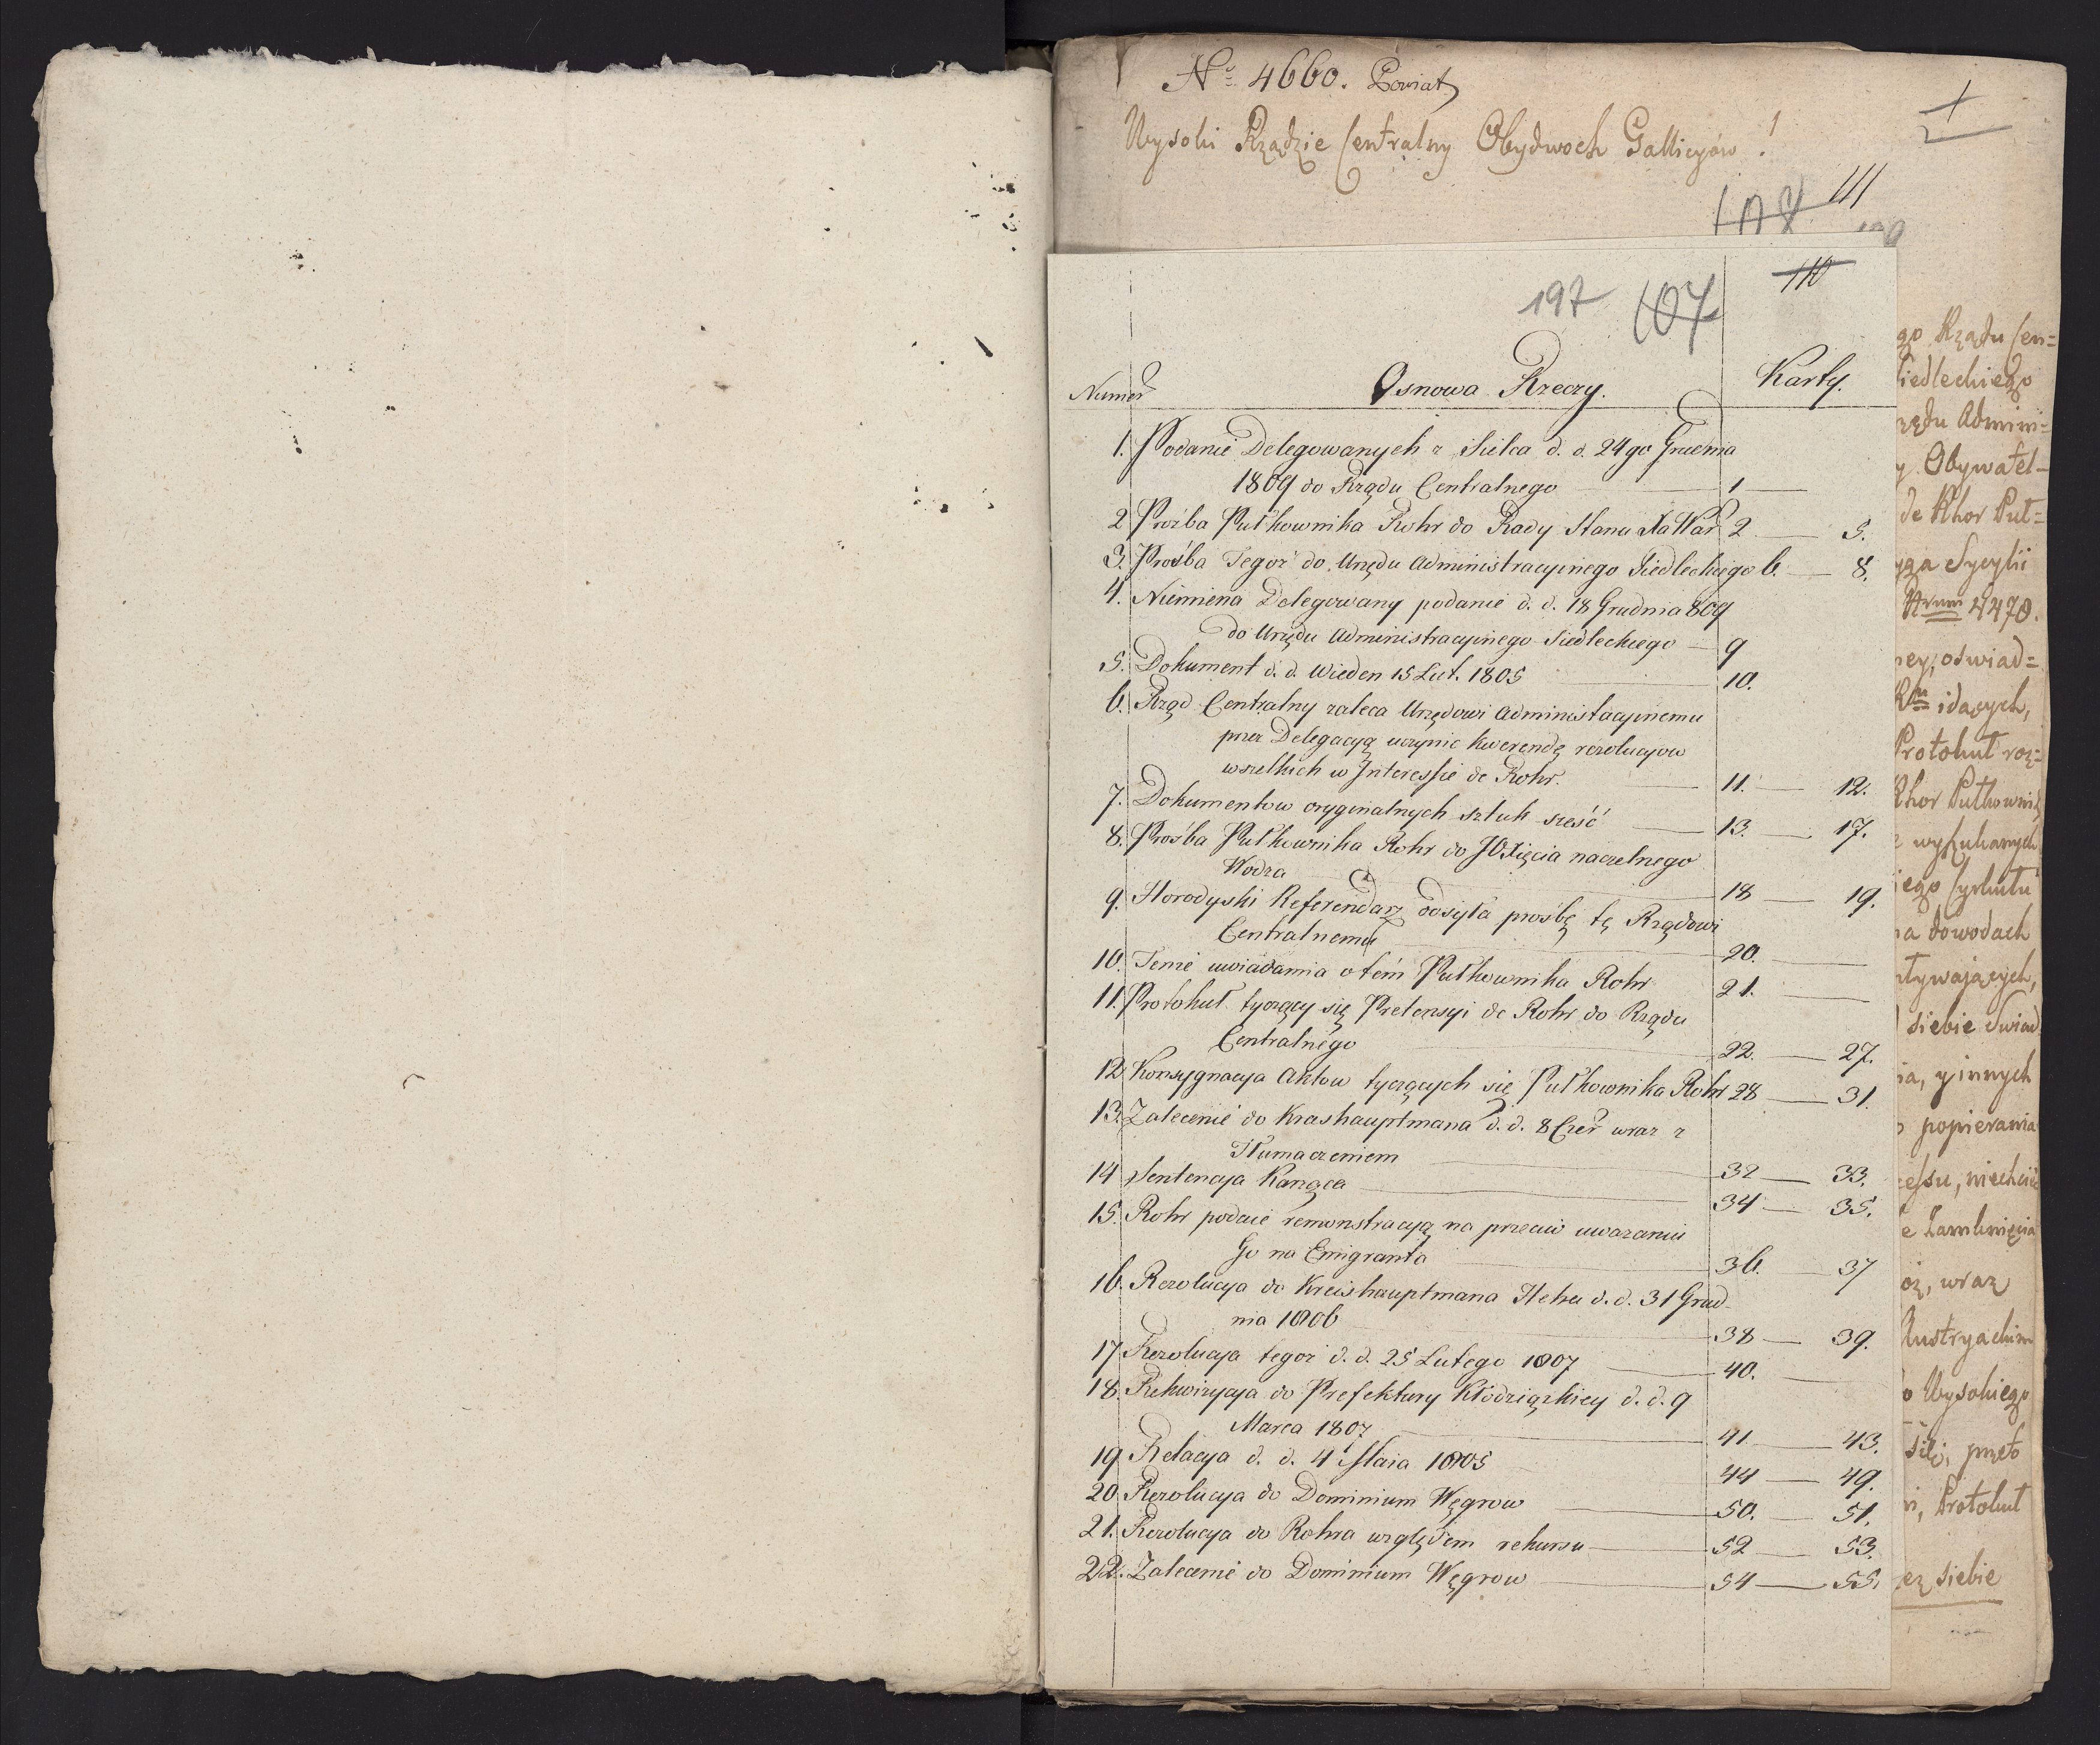 No 4660. Powiat
Wysoki Rządzie Centralny Obydwoch Gallicyów!
1
111
197 107 110
Numer Osnowa Rzeczy. Karty.
1. Podanie Delegowanych z Sielca d. d. 24go Grudnia
1809 do Rządu Centralnego — 1 —
2 Proźba Pułkownika Rohr do Rady Stanu Xa War 2 — 5.
3. Prośba Tegoż do Urzędu Administracyinego Siedleckiego 6. — 8.
4. Niemiena Delegowany podanie d. d. 18 Grudnia 809
do Urzędu Administracyinego Siedleckiego — 9
5. Dokument d. d. Wieden 15 Lut. 1805 — 10.
6. Rząd Centralny zaleca Urzędowi Administacyinemu
przez Delegacyą uczynic kwerendę rezolucyow
wszelkich w Interessie de Rohr. — 11. — 12.
7. Dokumentow oryginalnych sztuk sześć — 13. — 17.
8. Prośba Pułkownika Rohr do JOXięcia naczelnego
Wodza — 18 — 19.
9. Horodyski Referendarz dosyła prośbę tę Rządowi
Centralnemu — 20. —
10. Tenże uwiadamia o tém Pułkownika Rohr 21. —
11. Protokuł tyczący się Pretensyi de Rohr do Rządu
Centralnego — 22. — 27.
12 Konsygnacya Aktow tyczących się Pułkownika Rohr 28 — 31.
13. Zalecenie do Krashauptmana d. d. 8 Czer wraz z
Tłumaczeniem — 32 — 33.
14 Sentencya Karząca — 34 — 35.
15. Rohr podaie remonstracyą na przeciw uwazaniu
Go na Emigranta — 36. — 37
16. Rezolucya do Kreishauptmana Hehu d. d. 31 Grud-
nia 1806 — 38 — 39.
17 Rezolucya tegoż d. d. 25 Lutego 1807 — 40. —
18. Rekwizycya do Prefektury Kłodziązkiey d. d. 9
Marca 1807 — 41 — 43.
19 Relacya d. d. 4 Maia 1805 — 44 — 49.
20 Rezolucya do Dominium Węgrow — 50. — 51.
21. Rezolucya do Rohra względem rekursu — 52 — 53.
22. Zalecenie do Dominium Węgrow — 54 — 55.
go Rządu Cen=
Siedleckiego
rzędu Admini=
y Obywatel-
de Rhor Puł=
yga Sycylii
Nrum 4470.
ney, oswiad=
idących,
Protokuł roz=
Rhor Pułkownik
wyszukanych
iego Cyrkułu
na dowodach
ływających,
siebie Swiad
ia, y innych
popierania
cessu, niechcic
e Zamknięcia
oz, wraz
Austryackim
o Wysokiego
sili, przeto
ni, Protokuł
zez siebie